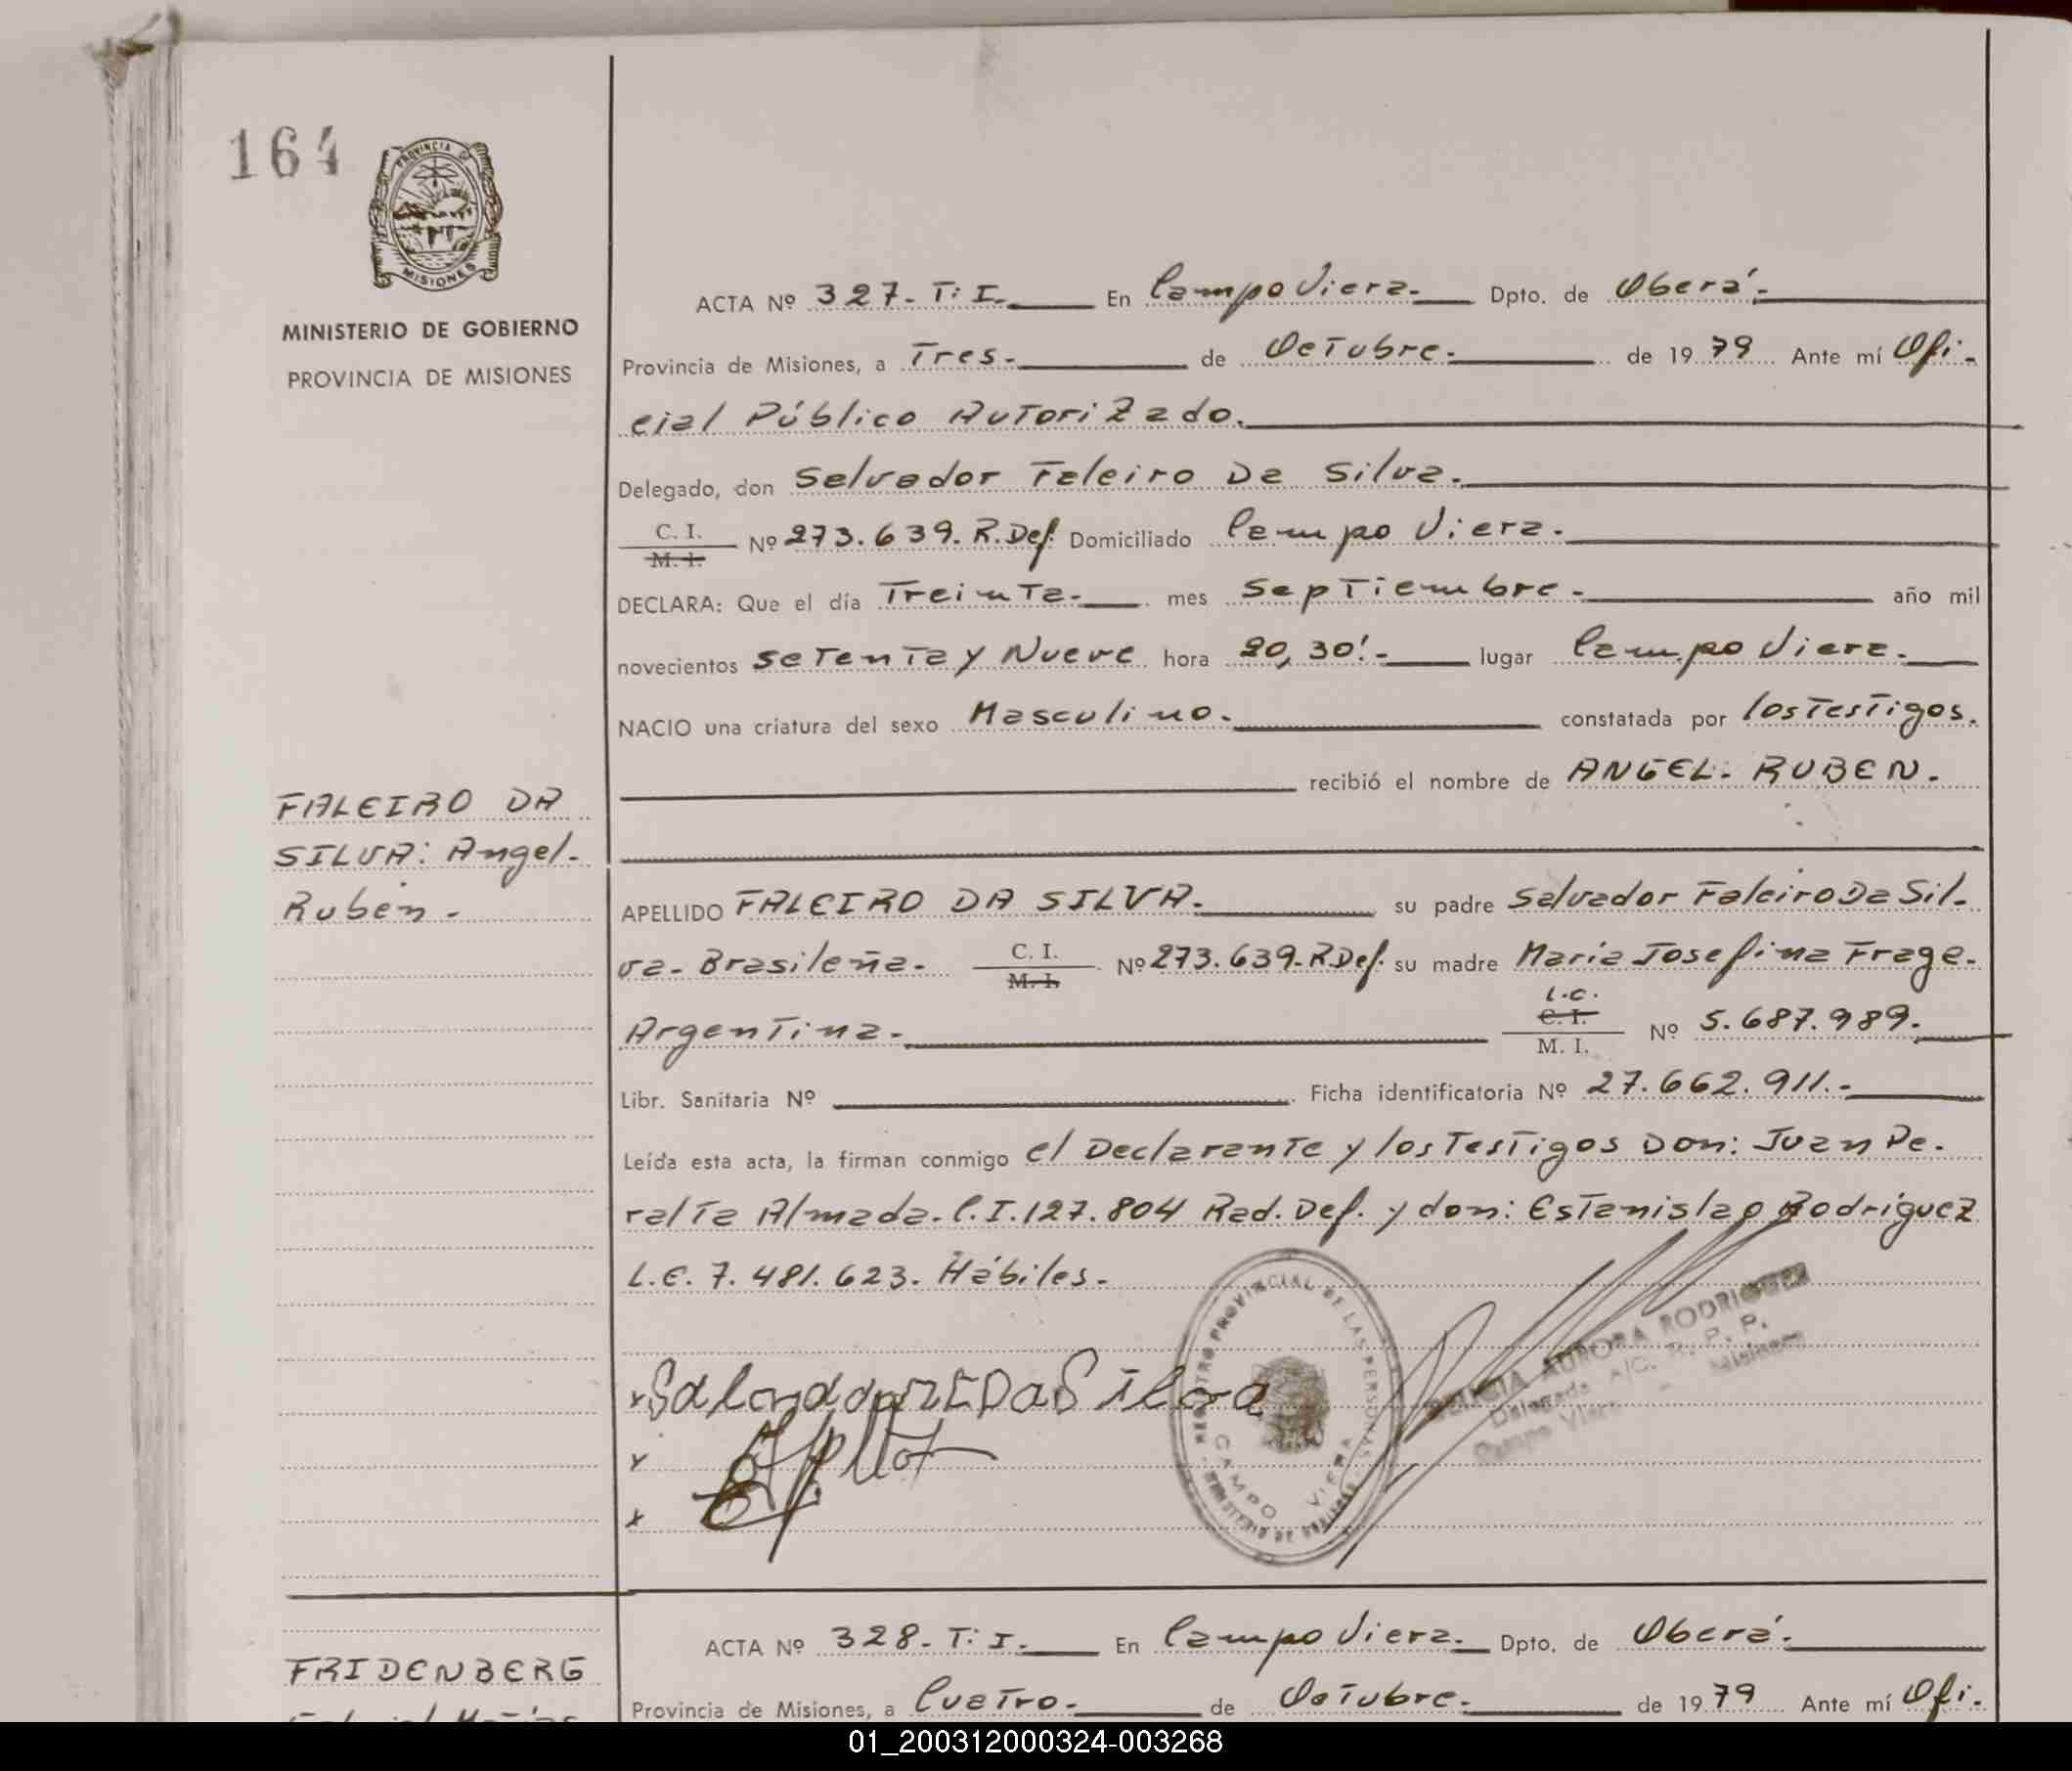 164
PROVINCIA DE
MISIONES
MINISTERIO DE GOBIERNO
PROVINCIA DE MISIONES
FALEIRO DA
SILVA: Angel.
Rubén.
ACTA Nº 327. T: I. En Campo Viera. Dpto. de Oberá.
Provincia de Misiones, a Tres. de Octubre. de 1979 Ante mí Ofi-
cial Público Autorizado.
Delegado, don Salvador Faleiro Da Silva.
C. I.
M. I.
Nº 273.639. R.Def. Domiciliado Campo Viera.
DECLARA: Que el día Treinta. mes Septiembre. año mil
novecientos setenta y Nueve hora 20,30'. lugar Campo Viera.
NACIO una criatura del sexo Masculino. constatada por los Testigos.
recibió el nombre de ANGEL. RUBEN.
APELLIDO FALEIRO DA SILVA. su padre Salvador Faleiro Da Sil-
va. Brasileña. C. I. Nº 273.639. R.Def. su madre María Josefina Fraga.
M. I.
L.C.
C. I.
Argentina. Nº 5.687.989.
M. I.
Libr. Sanitaria Nº Ficha identificatoria Nº 27.662.911.
Leída esta acta, la firman conmigo el Declarante y los Testigos Don: Juan Pe-
ralta Almada. C.I. 127.804 Rad. Def. y don: Estanislao Rodríguez
L.E. 7.481.623. Hábiles.
REGISTRO PROVINCIAL DE LAS PERSONAS
CAMPO VIERA
AURORA RODRIGUEZ
Delegada A/C. R. P. P.
Campo Viera - Misiones
FRIDENBERG
ACTA Nº 328. T: I. En Campo Viera. Dpto. de Oberá.
Provincia de Misiones, a Cuatro. de Octubre. de 1979 Ante mí Ofi-
01_200312000324-003268